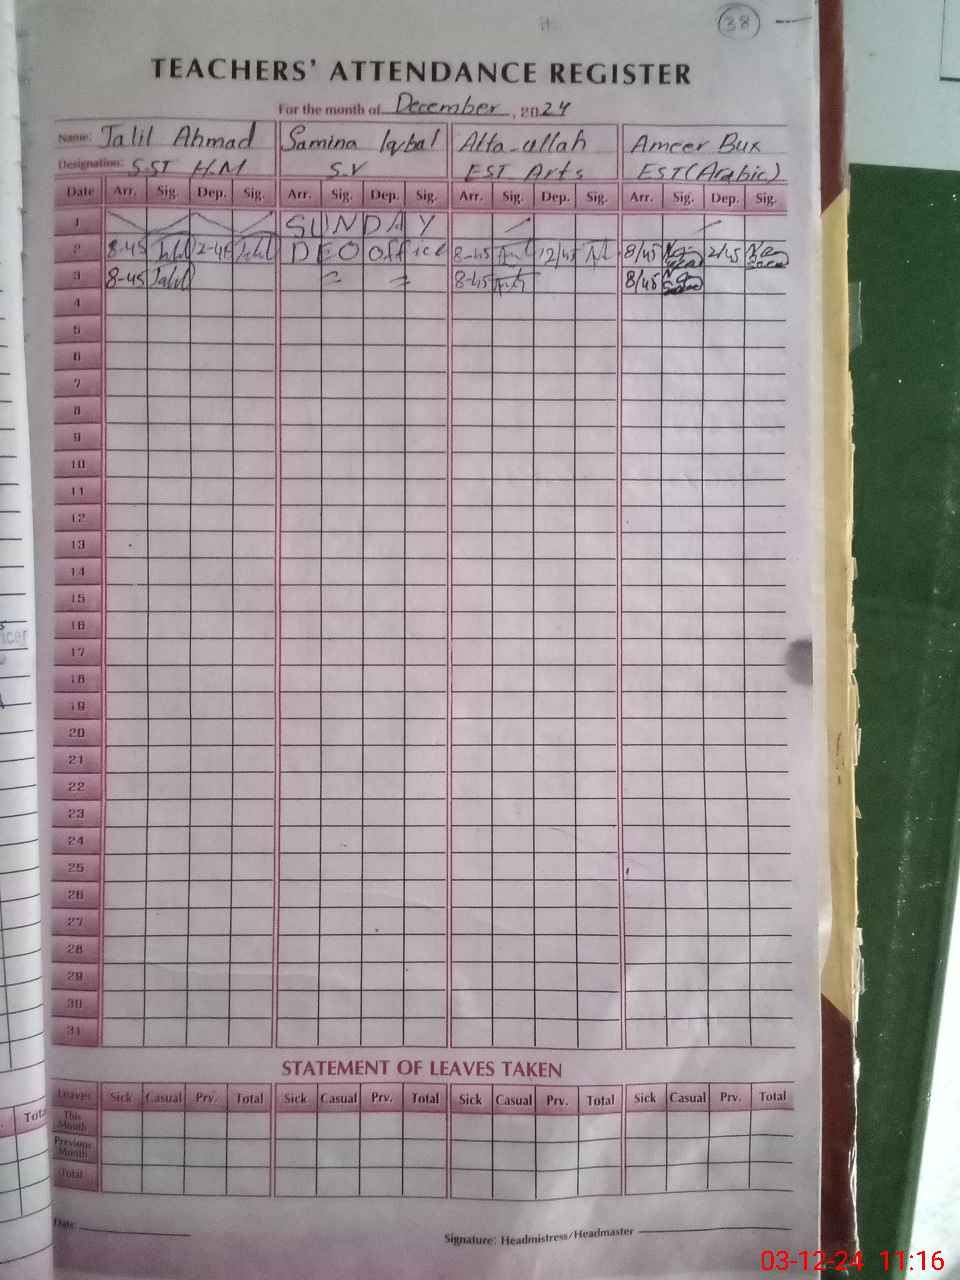 38
TEACHERS' ATTENDANCE REGISTER
For the month of December, 2024
Name: Jalil Ahmad Samina Iqbal Atta-ullah Ameer Bux
Designation: S.ST H.M S.V EST Arts EST (Arabic)
Date Arr. Sig. Dep. Sig. Arr. Sig. Dep. Sig. Arr. Sig. Dep. Sig. Arr. Sig. Dep. Sig.
1 SUNDAY
2 8-45 Jalil 2-45 Jalil DEO Office 8-45 12/45 8/45 2/45
3 8-45 Jalil 〃 〃 8-45 8/45
4
5
6
7
8
9
10
11
12
13
14
15
16
17
18
19
20
21
22
23
24
25
26
27
28
29
30
31
STATEMENT OF LEAVES TAKEN
Leaves Sick Casual Prv. Total Sick Casual Prv. Total Sick Casual Prv. Total Sick Casual Prv. Total
This Month
Previous Month
Total
Date
Signature: Headmistress/Headmaster
03-12-24 11:16